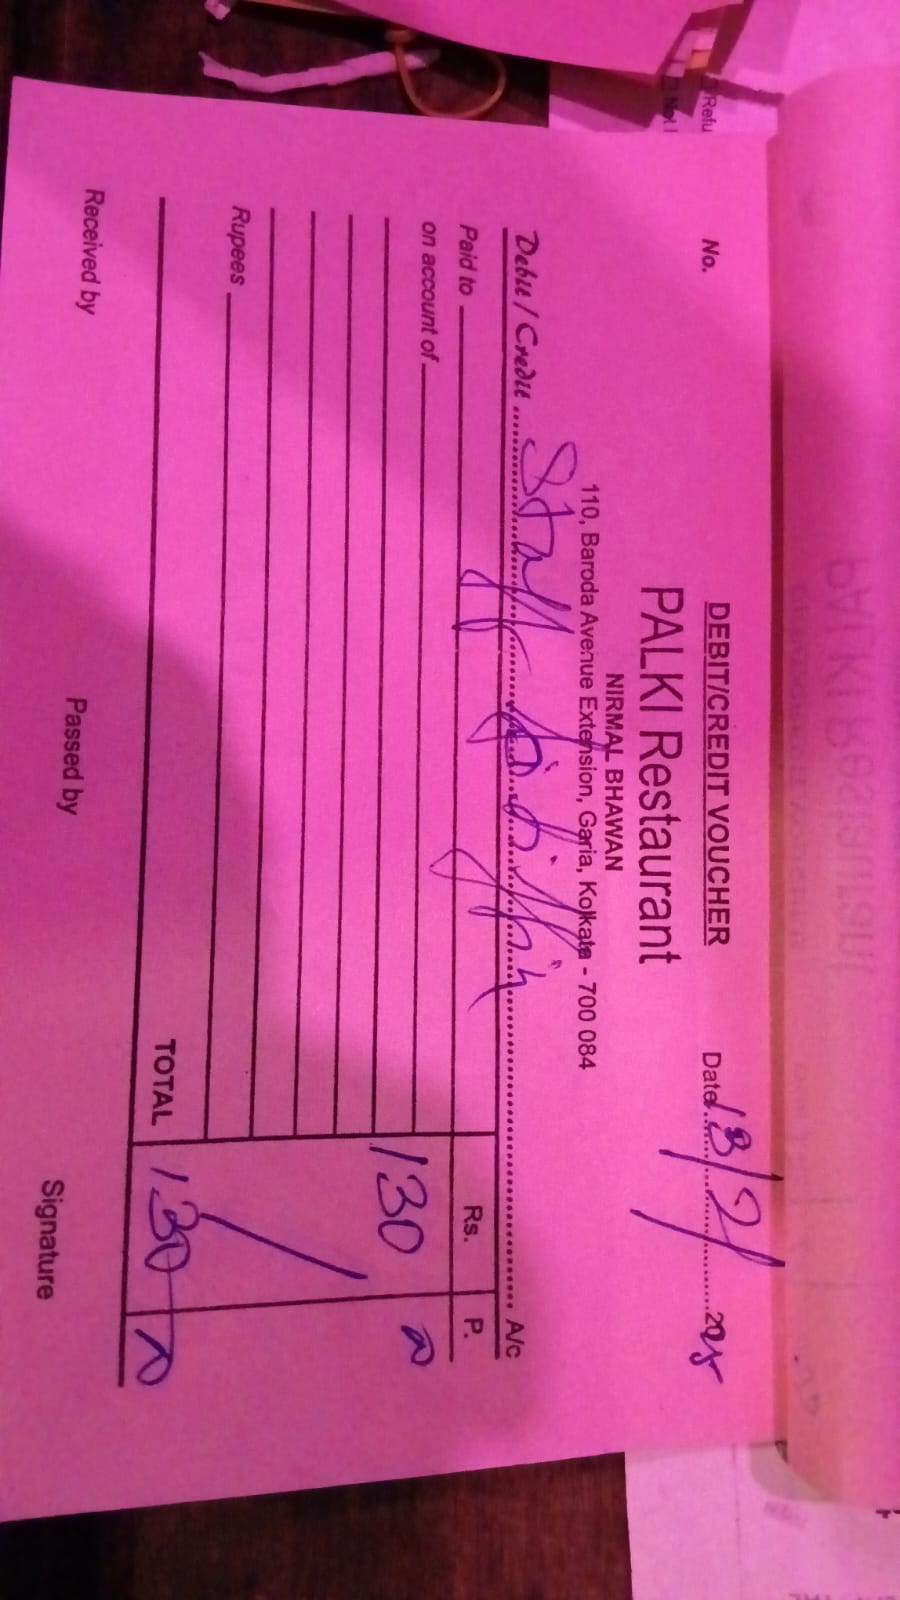 DEBIT/CREDIT VOUCHER
No.
Date 13/2/ 2025
PALKI Restaurant
NIRMAL BHAWAN
110, Baroda Avenue Extension, Garia, Kolkata - 700 084
Debit / Credit Staff A/c
Rs. P.
Paid to
on account of
130
Rupees
TOTAL 130
Received by Passed by Signature
Refu
Not